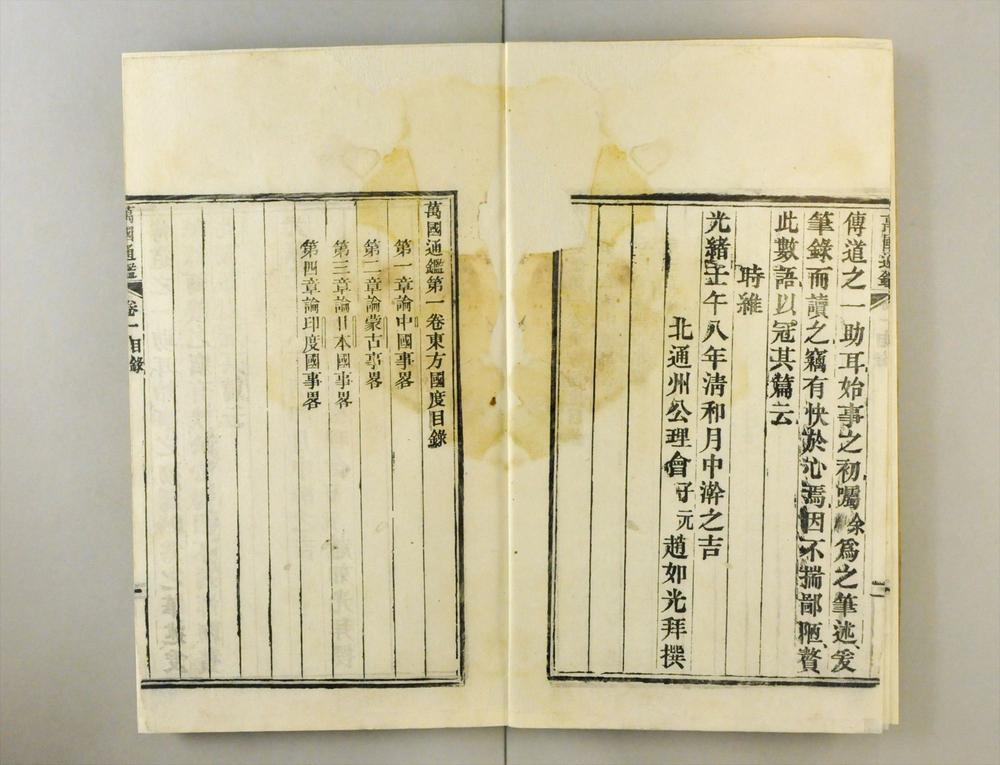 萬國通鑑
二
傳道之一助耳始事之初囑余爲之筆述爰
筆錄而讀之竊有快於心焉因不揣鄙陋贅
此數語以冠其篇云
時維
光緒壬午八年清和月中澣之吉
北通州公理會子元趙如光拜撰
萬國通鑑第一卷東方國度目錄
第一章論中國事畧
第二章論蒙古事畧
第三章論日本國事畧
第四章論印度國事畧
萬國通鑑
卷一目錄
一